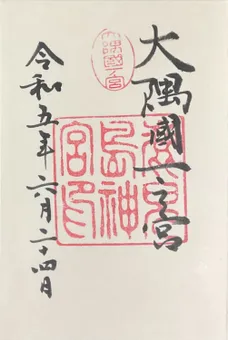 大隅國一宮
大隅國一之宮
鹿兒
島神
宮印
令和五年六月二十四日